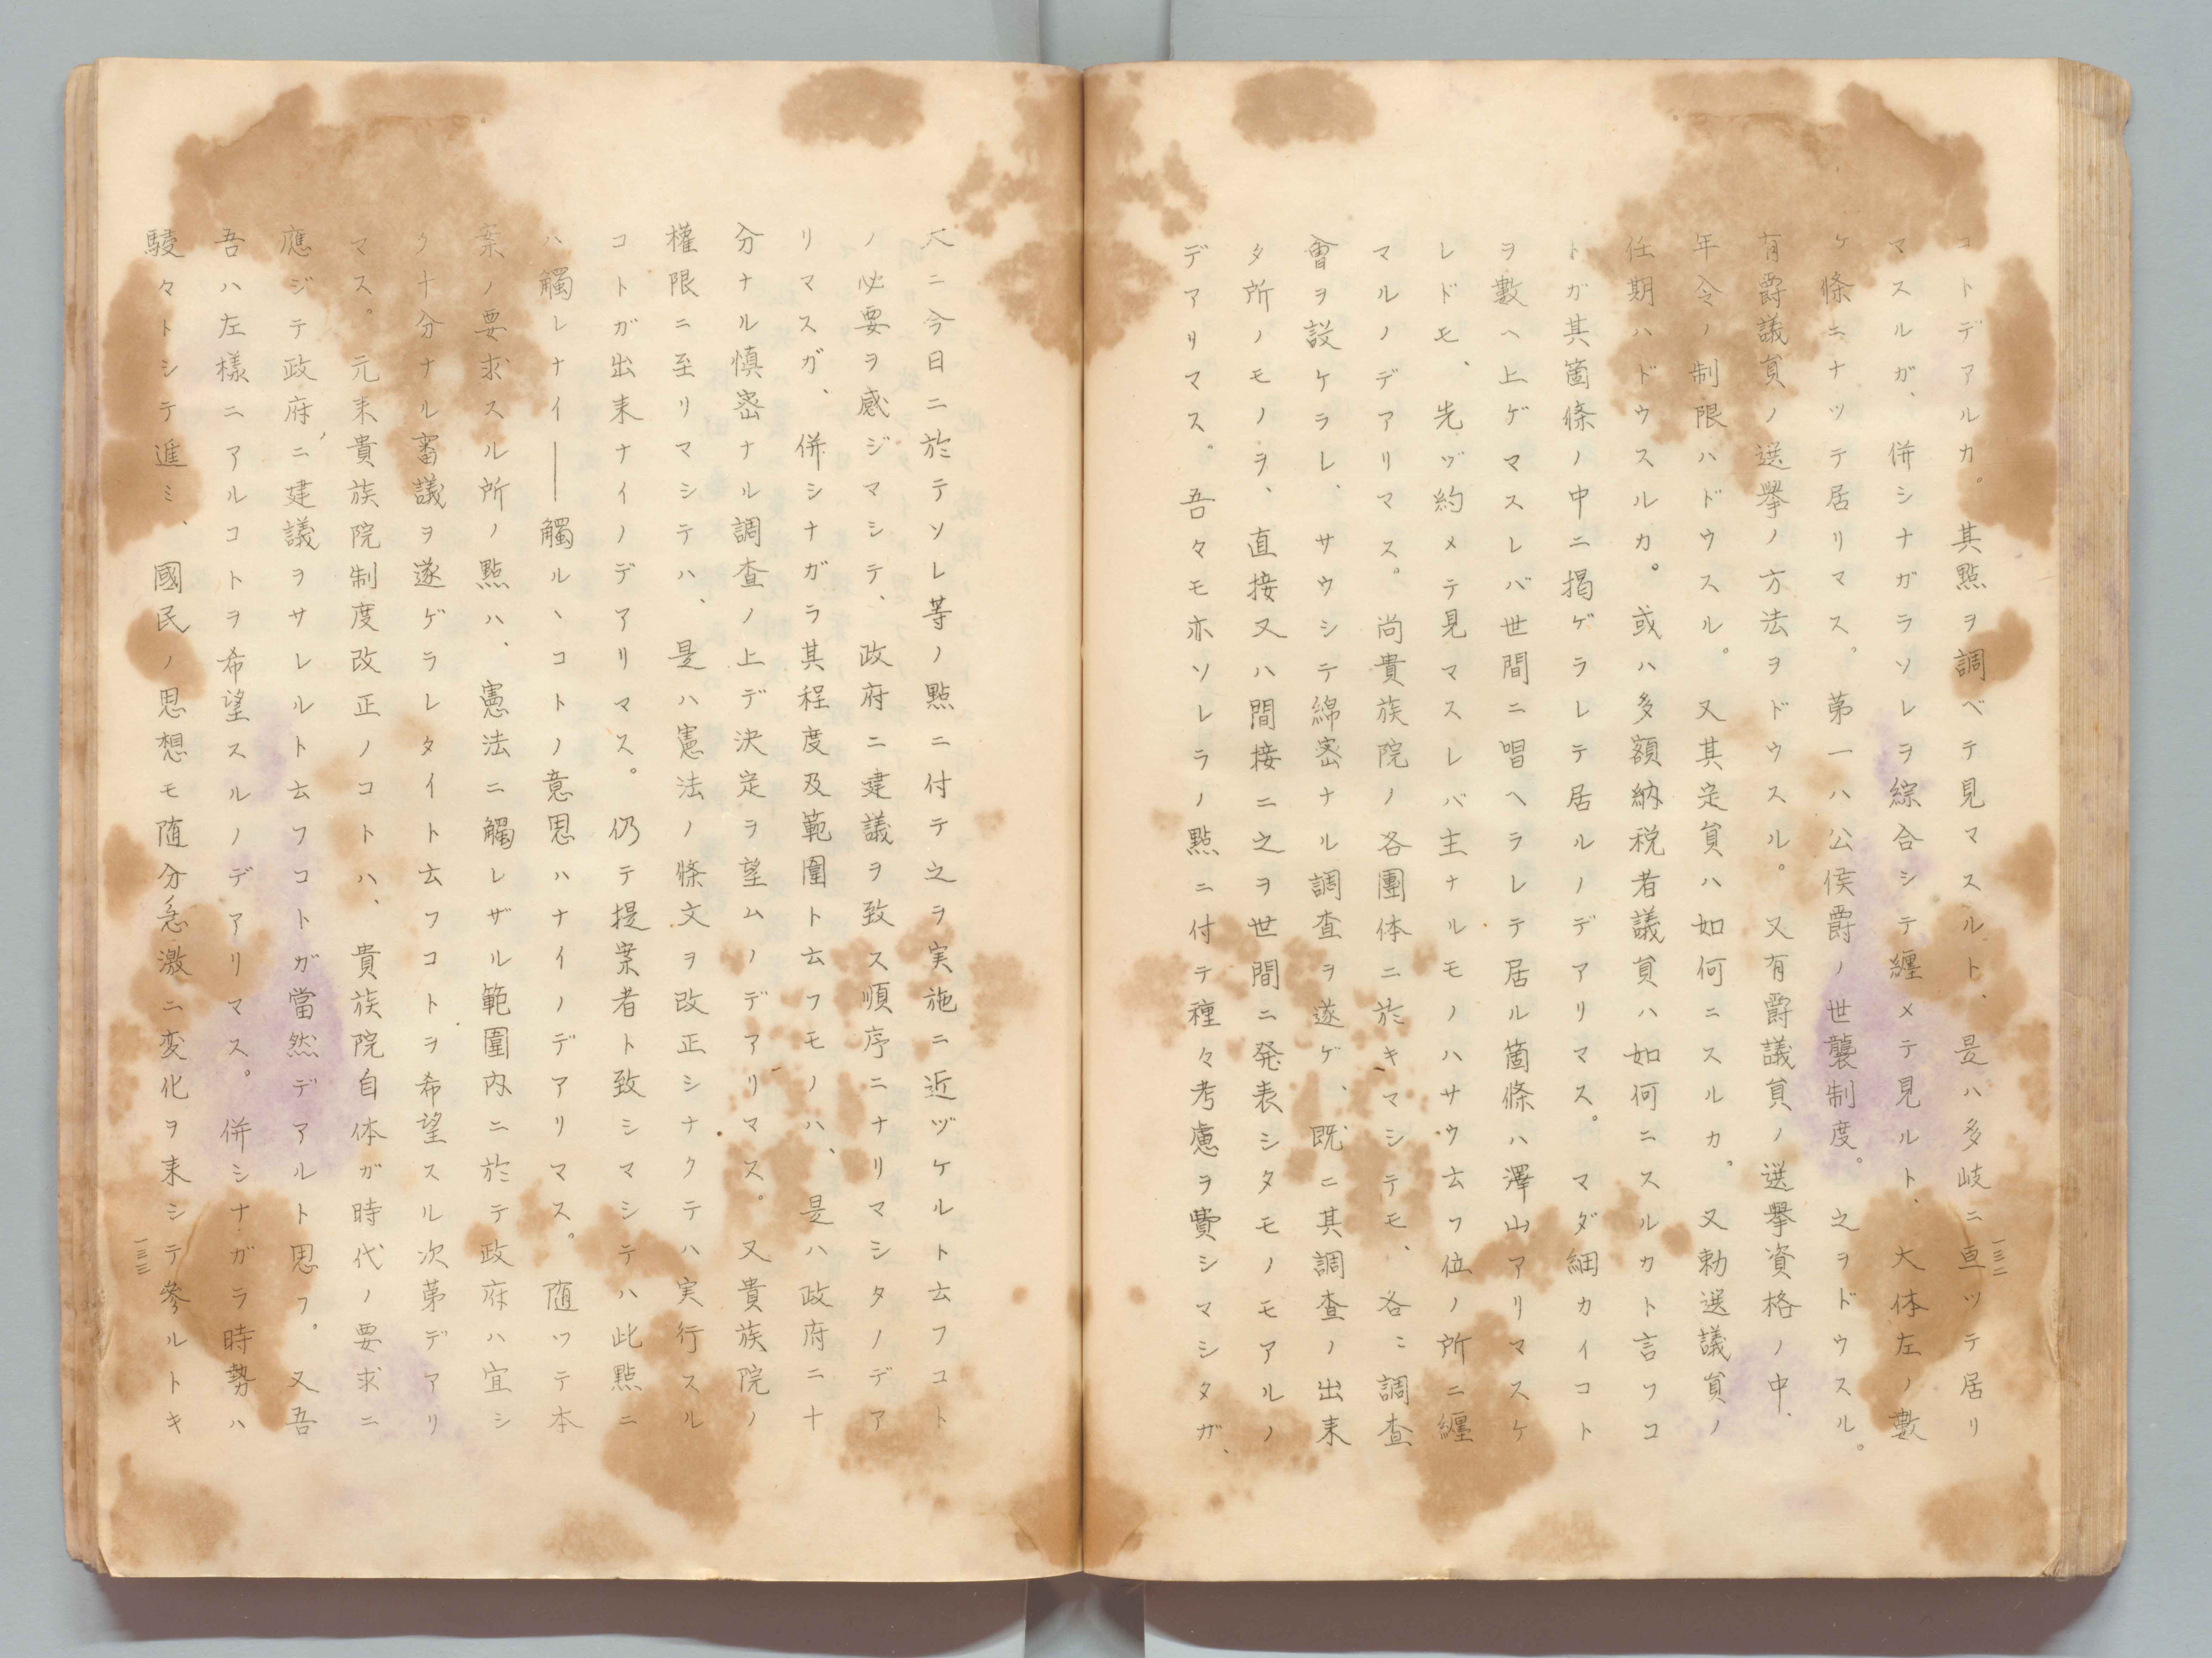 コトデアルカ。其點ヲ調ベテ見マスルト、是ハ多岐ニ亘ツテ居リ
マスルガ、併シナガラソレヲ綜合シテ纏メテ見ルト、大体左ノ數
ケ條ニナツテ居リマス。第一ハ公侯爵ノ世襲制度。之ヲドウスル。
有爵議員ノ選擧ノ方法ヲドウスル。又有爵議員ノ選擧資格ノ中、
年令ノ制限ハドウスル。又其定員ハ如何ニスルカ。又勅選議員ノ
任期ハドウスルカ。或ハ多額納税者議員ハ如何ニスルカト言フコ
トガ其箇條ノ中ニ揭ゲラレテ居ルノデアリマス。マダ細カイコト
ヲ數ヘ上ゲマスレバ世間ニ唱ヘラレテ居ル箇條ハ澤山アリマスケ
レドモ、先ヅ約メテ見マスレバ主ナルモノハサウ云フ位ノ所ニ纏
マルノデアリマス。尚貴族院ノ各團体ニ於キマシテモ、各〻調査
會ヲ設ケラレ、サウシテ綿密ナル調査ヲ遂ゲ、既ニ其調査ノ出来
タ所ノモノヲ、直接又ハ間接ニ之ヲ世間ニ発表シタモノモアルノ
デアリマス。吾々モ亦ソレラノ點ニ付テ種々考慮ヲ費シマシタガ、
一三二
大ニ今日ニ於テソレ等ノ點ニ付テ之ヲ実施ニ近ヅケルト云フコト
ノ必要ヲ感ジマシテ、政府ニ建議ヲ致ス順序ニナリマシタノデア
リマスガ、併シナガラ其程度及範圍ト云フモノハ、是ハ政府ニ十
分ナル慎密ナル調査ノ上デ決定ヲ望ムノデアリマス。又貴族院ノ
權限ニ至リマシテハ、是ハ憲法ノ條文ヲ改正シナクテハ実行スル
コトガ出来ナイノデアリマス。仍テ提案者ト致シマシテハ此點ニ
ハ觸レナイ――觸ルヽコトノ意思ハナイノデアリマス。随ツテ本
案ノ要求スル所ノ點ハ、憲法ニ觸レザル範圍内ニ於テ政府ハ宜シ
ク十分ナル審議ヲ遂ゲラレタイト云フコトヲ希望スル次第デアリ
マス。元来貴族院制度改正ノコトハ、貴族院自体ガ時代ノ要求ニ
應ジテ政府ニ建議ヲサレルト云フコトガ當然デアルト思フ。又吾
吾ハ左様ニアルコトヲ希望スルノデアリマス。併シナガラ時勢ハ
駸々トシテ進ミ、國民ノ思想モ随分急激ニ変化ヲ来シテ參ルトキ
一三三